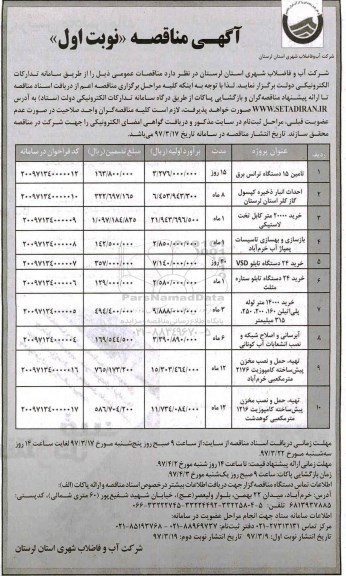 آگهی مناقصه «نوبت اول»
شرکت آب و فاضلاب شهری استان لرستان
شرکت آب و فاضلاب شهری استان لرستان در نظر دارد مناقصات عمومی ذیل را از طریق سامانه تدارکات
الکترونیکی دولت برگزار نماید. لذا با توجه به اینکه کلیه مراحل برگزاری مناقصه اعم از دریافت اسناد مناقصه
تا ارائه پیشنهاد مناقصه‌گران و بازگشایی پاکات از طریق درگاه سامانه تدارکات الکترونیکی دولت (ستاد) به آدرس
WWW.SETADIRAN.IR صورت خواهد پذیرفت، لازم است کلیه مناقصه‌گران واجد صلاحیت در صورت عدم
عضویت قبلی، مراحل ثبت‌نام در سایت مذکور و دریافت گواهی امضای الکترونیکی را جهت شرکت در مناقصه
محقق سازند. تاریخ انتشار مناقصه در سامانه تاریخ ۹۷/۳/۱۷ می‌باشد.
ردیف عنوان پروژه مدت برآورد اولیه (ریال) مبلغ تضمین (ریال) کد فراخوان در سامانه
۱ تامین ۱۵ دستگاه ترانس برق ۱۵ روز ۳/۲۷۶/۰۰۰/۰۰۰ ۱۶۳/۸۰۰/۰۰۰ ۲۰۰۹۷۱۳۴۰۰۰۰۰۱۲
۲ احداث انبار ذخیره کپسول گاز کلر استان لرستان ۸ ماه ۶/۴۵۳/۹۴۳/۳۰۰ ۳۲۲/۶۹۷/۱۶۵ ۲۰۰۹۷۱۳۴۰۰۰۰۰۱۰
۳ خرید ۲۰۰۰۰ متر کابل تخت لاستیکی ۲۱/۹۴۳/۶۹۶/۵۰۰ ۱/۰۹۷/۱۸۴/۸۲۵ ۲۰۰۹۷۱۳۴۰۰۰۰۰۰۹
۴ بازسازی و بهسازی تاسیسات پمپاژ آب خرم‌آباد ۲/۸۵۰/۰۰۰/۰۰۰ ۱۴۲/۵۰۰/۰۰۰ ۲۰۰۹۷۱۳۴۰۰۰۰۰۰۸
۵ خرید ۲۴ دستگاه تابلو VSD ۷/۱۴۰/۰۰۰/۰۰۰ ۳۵۷/۰۰۰/۰۰۰ ۲۰۰۹۷۱۳۴۰۰۰۰۰۰۷
۶ خرید ۲۴ دستگاه تابلو ستاره مثلث ۲/۵۸۰/۰۰۰/۰۰۰ ۱۲۹/۰۰۰/۰۰۰ ۲۰۰۹۷۱۳۴۰۰۰۰۰۰۶
۷ خرید ۱۴۰۰۰ متر لوله پلی‌اتیلن ۱۶۰، ۲۰۰، ۲۵۰، ۳۱۵ میلیمتر ۳ ماه ۹/۸۸۸/۰۰۰/۰۰۰ ۴۹۴/۴۰۰/۰۰۰ ۲۰۰۹۷۱۳۴۰۰۰۰۰۰۵
۸ آبرسانی و اصلاح شبکه و نصب انشعابات آب کونانی ۶ ماه ۳/۳۹۰/۸۹۰/۰۰۰ ۱۶۹/۵۴۴/۵۰۰ ۲۰۰۹۷۱۳۴۰۰۰۰۰۰۴
۹ تهیه، حمل و نصب مخزن پیش‌ساخته کامپوزیت ۲۱۷۶ مترمکعبی خرم‌آباد ۱۲ ماه ۱۵/۳۰۳/۴۶۴/۰۰۰ ۷۶۵/۱۷۳/۲۰۰ ۲۰۰۹۷۱۳۴۰۰۰۰۰۱۶
۱۰ تهیه، حمل و نصب مخزن پیش‌ساخته کامپوزیت ۱۲۱۶ مترمکعبی کوهدشت ۱۲ ماه ۱۱/۷۳۴/۰۸۴/۰۰۰ ۵۸۶/۷۰۴/۲۰۰ ۲۰۰۹۷۱۳۴۰۰۰۰۰۱۷
ParsNamadData
مهلت زمانی دریافت اسناد مناقصه از سایت: از ساعت ۹ صبح روز پنج‌شنبه مورخ ۹۷/۳/۱۷ لغایت ساعت ۱۴ روز
سه‌شنبه مورخ ۹۷/۳/۲۲
مهلت زمانی ارائه پیشنهاد قیمت: تا ساعت ۱۴ روز شنبه مورخ ۹۷/۴/۲
زمان بازگشایی پاکات: ساعت ۹ صبح روز یکشنبه مورخ ۹۷/۴/۳
اطلاعات تماس دستگاه مناقصه‌گزار جهت دریافت اطلاعات بیشتر در خصوص اسناد مناقصه و ارائه پاکات (الف):
آدرس: خرم‌آباد، میدان ۲۲ بهمن، بلوار ولیعصر (عج)، خیابان شهید شفیع‌پور (۶۰ متری شمالی)، کدپستی:
۶۸۱۳۹۳۷۸۸۵
اطلاعات سامانه ستاد جهت انجام مراحل عضویت در سامانه:
مرکز تماس ۲۷۳۱۳۱۳۱-۰۲۱ دفتر ثبت‌نام: ۸۸۹۶۹۷۳۷-۰۲۱ و ۸۵۱۹۳۷۶۸-۰۲۱
تاریخ انتشار نوبت اول: ۹۷/۳/۹ تاریخ انتشار نوبت دوم: ۹۷/۳/۱۹
شرکت آب و فاضلاب شهری استان لرستان